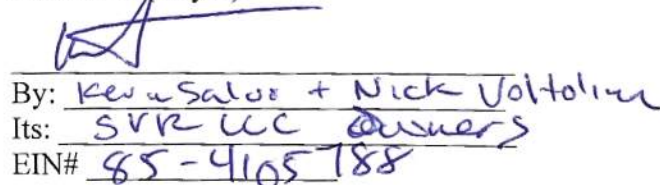 By: Kevin Salvo + Nick Voltolina
Its: SVR LLC Owners
EIN# 85-4105788